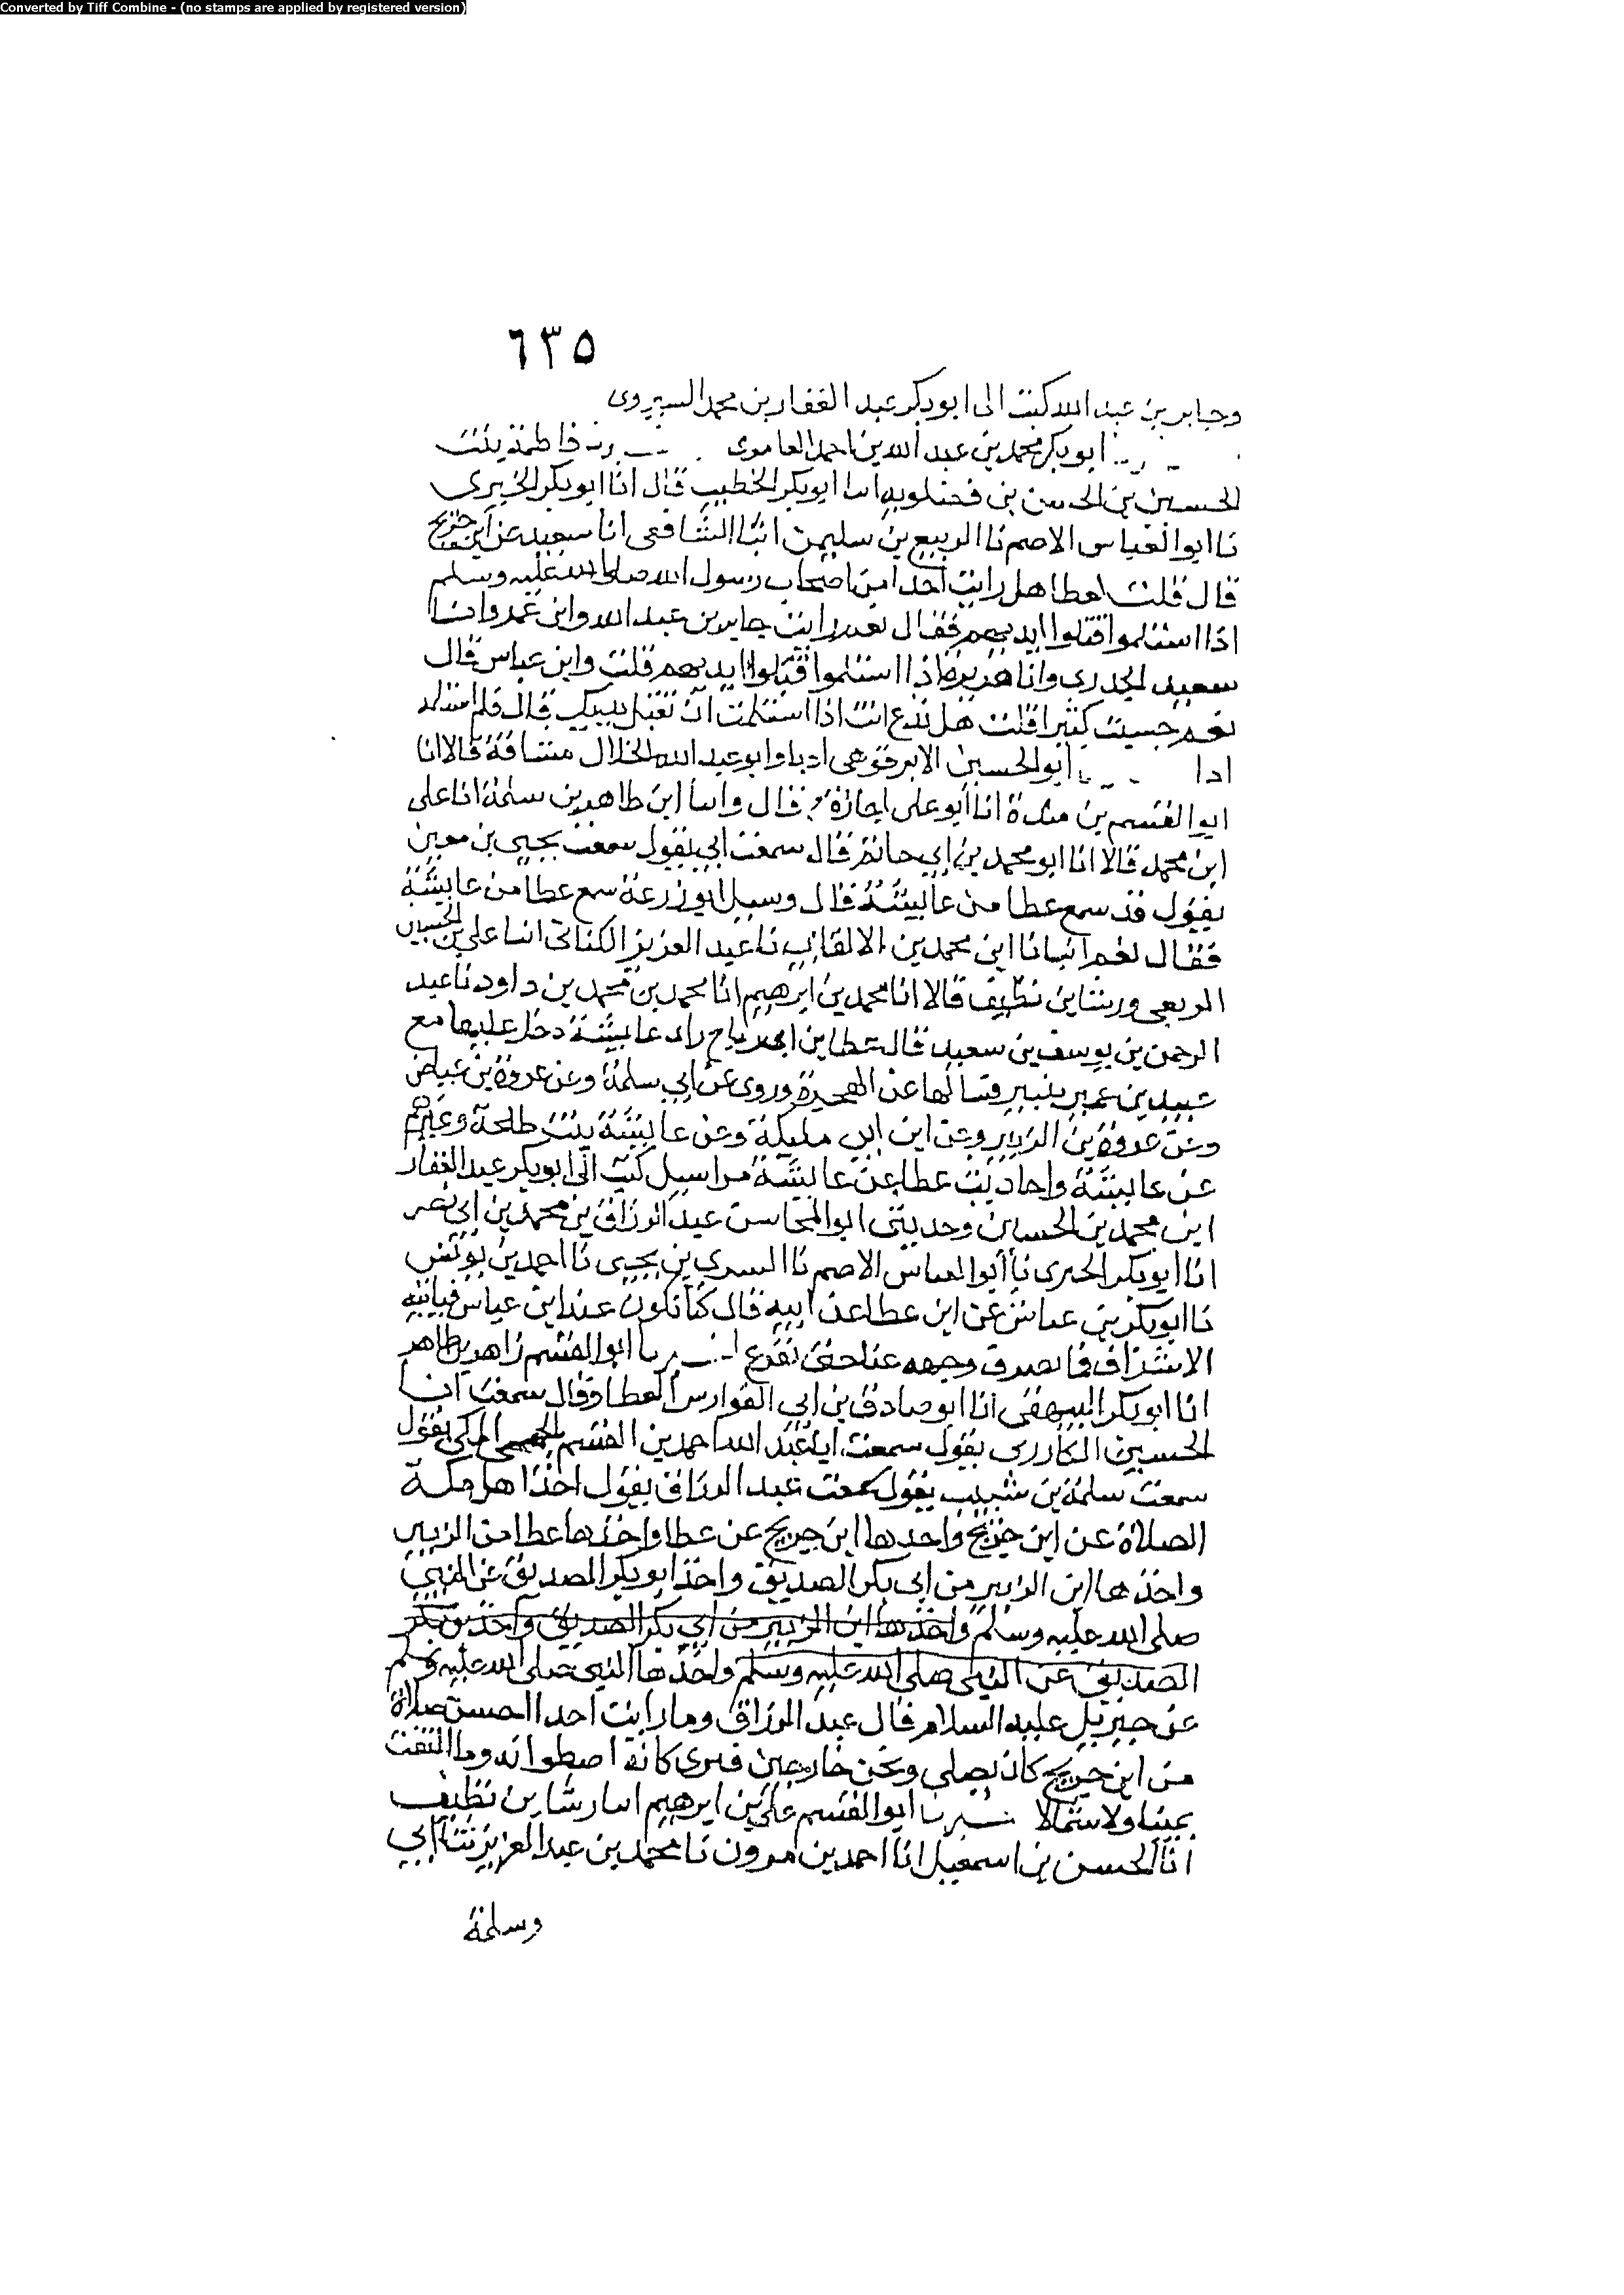 Converted by Tiff Combine - (no stamps are applied by registered version)
٦٣٥
وجابر بن عبد الله كتب الى ابو بكر عبد الغفار بن محمد السيروى
ابو بكر محمد بن عبد الله بن احمد العامرى فاطمة بنت
الحسين بن الحسن بن فضلويه انا ابو بكر الخطيب قال انا ابو بكر الحيرى
نا ابو العباس الاصم نا الربيع بن سليمن انبا الشافعى انا سعيد عن ابن جريج
قال قلت لعطا هل رايت احدا من اصحاب رسول الله صلى الله عليه وسلم
اذا استلموا قبلوا ايديهم فقال نعم رايت جابر بن عبد الله وابن عمر وابا
سعيد الخدرى وابا هريرة اذا استلموا قبلوا ايديهم قلت وابن عباس قال
نعم حسبت كثيرا قلت هل تدع انت اذا استلمت ان تقبل يديك قال فلم استلمه
اذا ابو الحسين الابرقوهى اذنا وابو عبد الله الخلال مشافهة قالا انا
ابو القسم بن مندة انا ابو على اجازة قال وانا ابن طاهر بن سلمة انا على
ابن محمد قالا انا ابو محمد بن ابي حاتم قال سمعت ابي يقول سمعت يحيى بن معين
يقول قد سمع عطا من عايشة قال وسيل ابو زرعة سمع عطا من عايشة
فقال نعم انبانا ابن محمد بن الاكفانى نا عبد العزيز الكتانى انا على بن الحسين
الربعى ورشا بن نظيف قالا انا محمد بن ابرهيم انا محمد بن محمد بن داود نا عبد
الرحمن بن يوسف بن سعيد قال عطا بن ابى رباح راى عايشة دخل عليها مع
عبيد بن عمير بثبير وسالها عن الهجرة وروى عن ابي سلمة وعن عروة بن عياض
وعن عروة بن الزبير وعن ابن ابى مليكة وعن عايشة بنت طلحة وغيرهم
عن عايشة واحاديث عطا عن عايشة مراسيل كتب الى ابو بكر عبد الغفار
ابن محمد بن الحسين وحدثنى ابو المحاسن عبد الرزاق بن محمد بن ابي نصر
انا ابو بكر الحيرى نا ابو العباس الاصم نا السرى بن يحيى نا احمد بن يونس
نا ابو بكر بن عياش عن ابن عطا عن ابيه قال كنا نكون عند ابن عباس فياتيه
الاشراف فما يصرف وجهه عنا حتى نفرغ ابو القسم زاهر بن طاهر
انا ابو بكر البيهقى انا ابو صادق بن ابي الفوارس العطار قال سمعت ابا
الحسين الكارزى يقول سمعت ابا عبد الله احمد بن القسم المكى يقول
سمعت سلمة بن شبيب يقول سمعت عبد الرزاق يقول اخذ اهل مكة
الصلاة عن ابن جريج واخذها ابن جريج عن عطا واخذها عطا من الزبير
واخذها ابن الزبير من ابي بكر الصديق واخذ ابو بكر الصديق عن النبي
صلى الله عليه وسلم واخذها ابن الزبير من ابي بكر الصديق واخذ بو بكر
الصديق عن النبى صلى الله عليه وسلم واخذها النبى صلى الله عليه وسلم
عن جبريل عليه السلام قال عبد الرزاق وما رايت احدا احسن صلاة
من ابن جريج كان يصلى ونحن خارجين فيرى كانه اصطوانه وما التفت
يمينا ولا شمالا ابو القسم على بن ابرهيم انا رشا بن نظيف
انا الحسن بن اسمعيل انا احمد بن مرون نا محمد بن عبد العزيز نا ابي
وسلمة